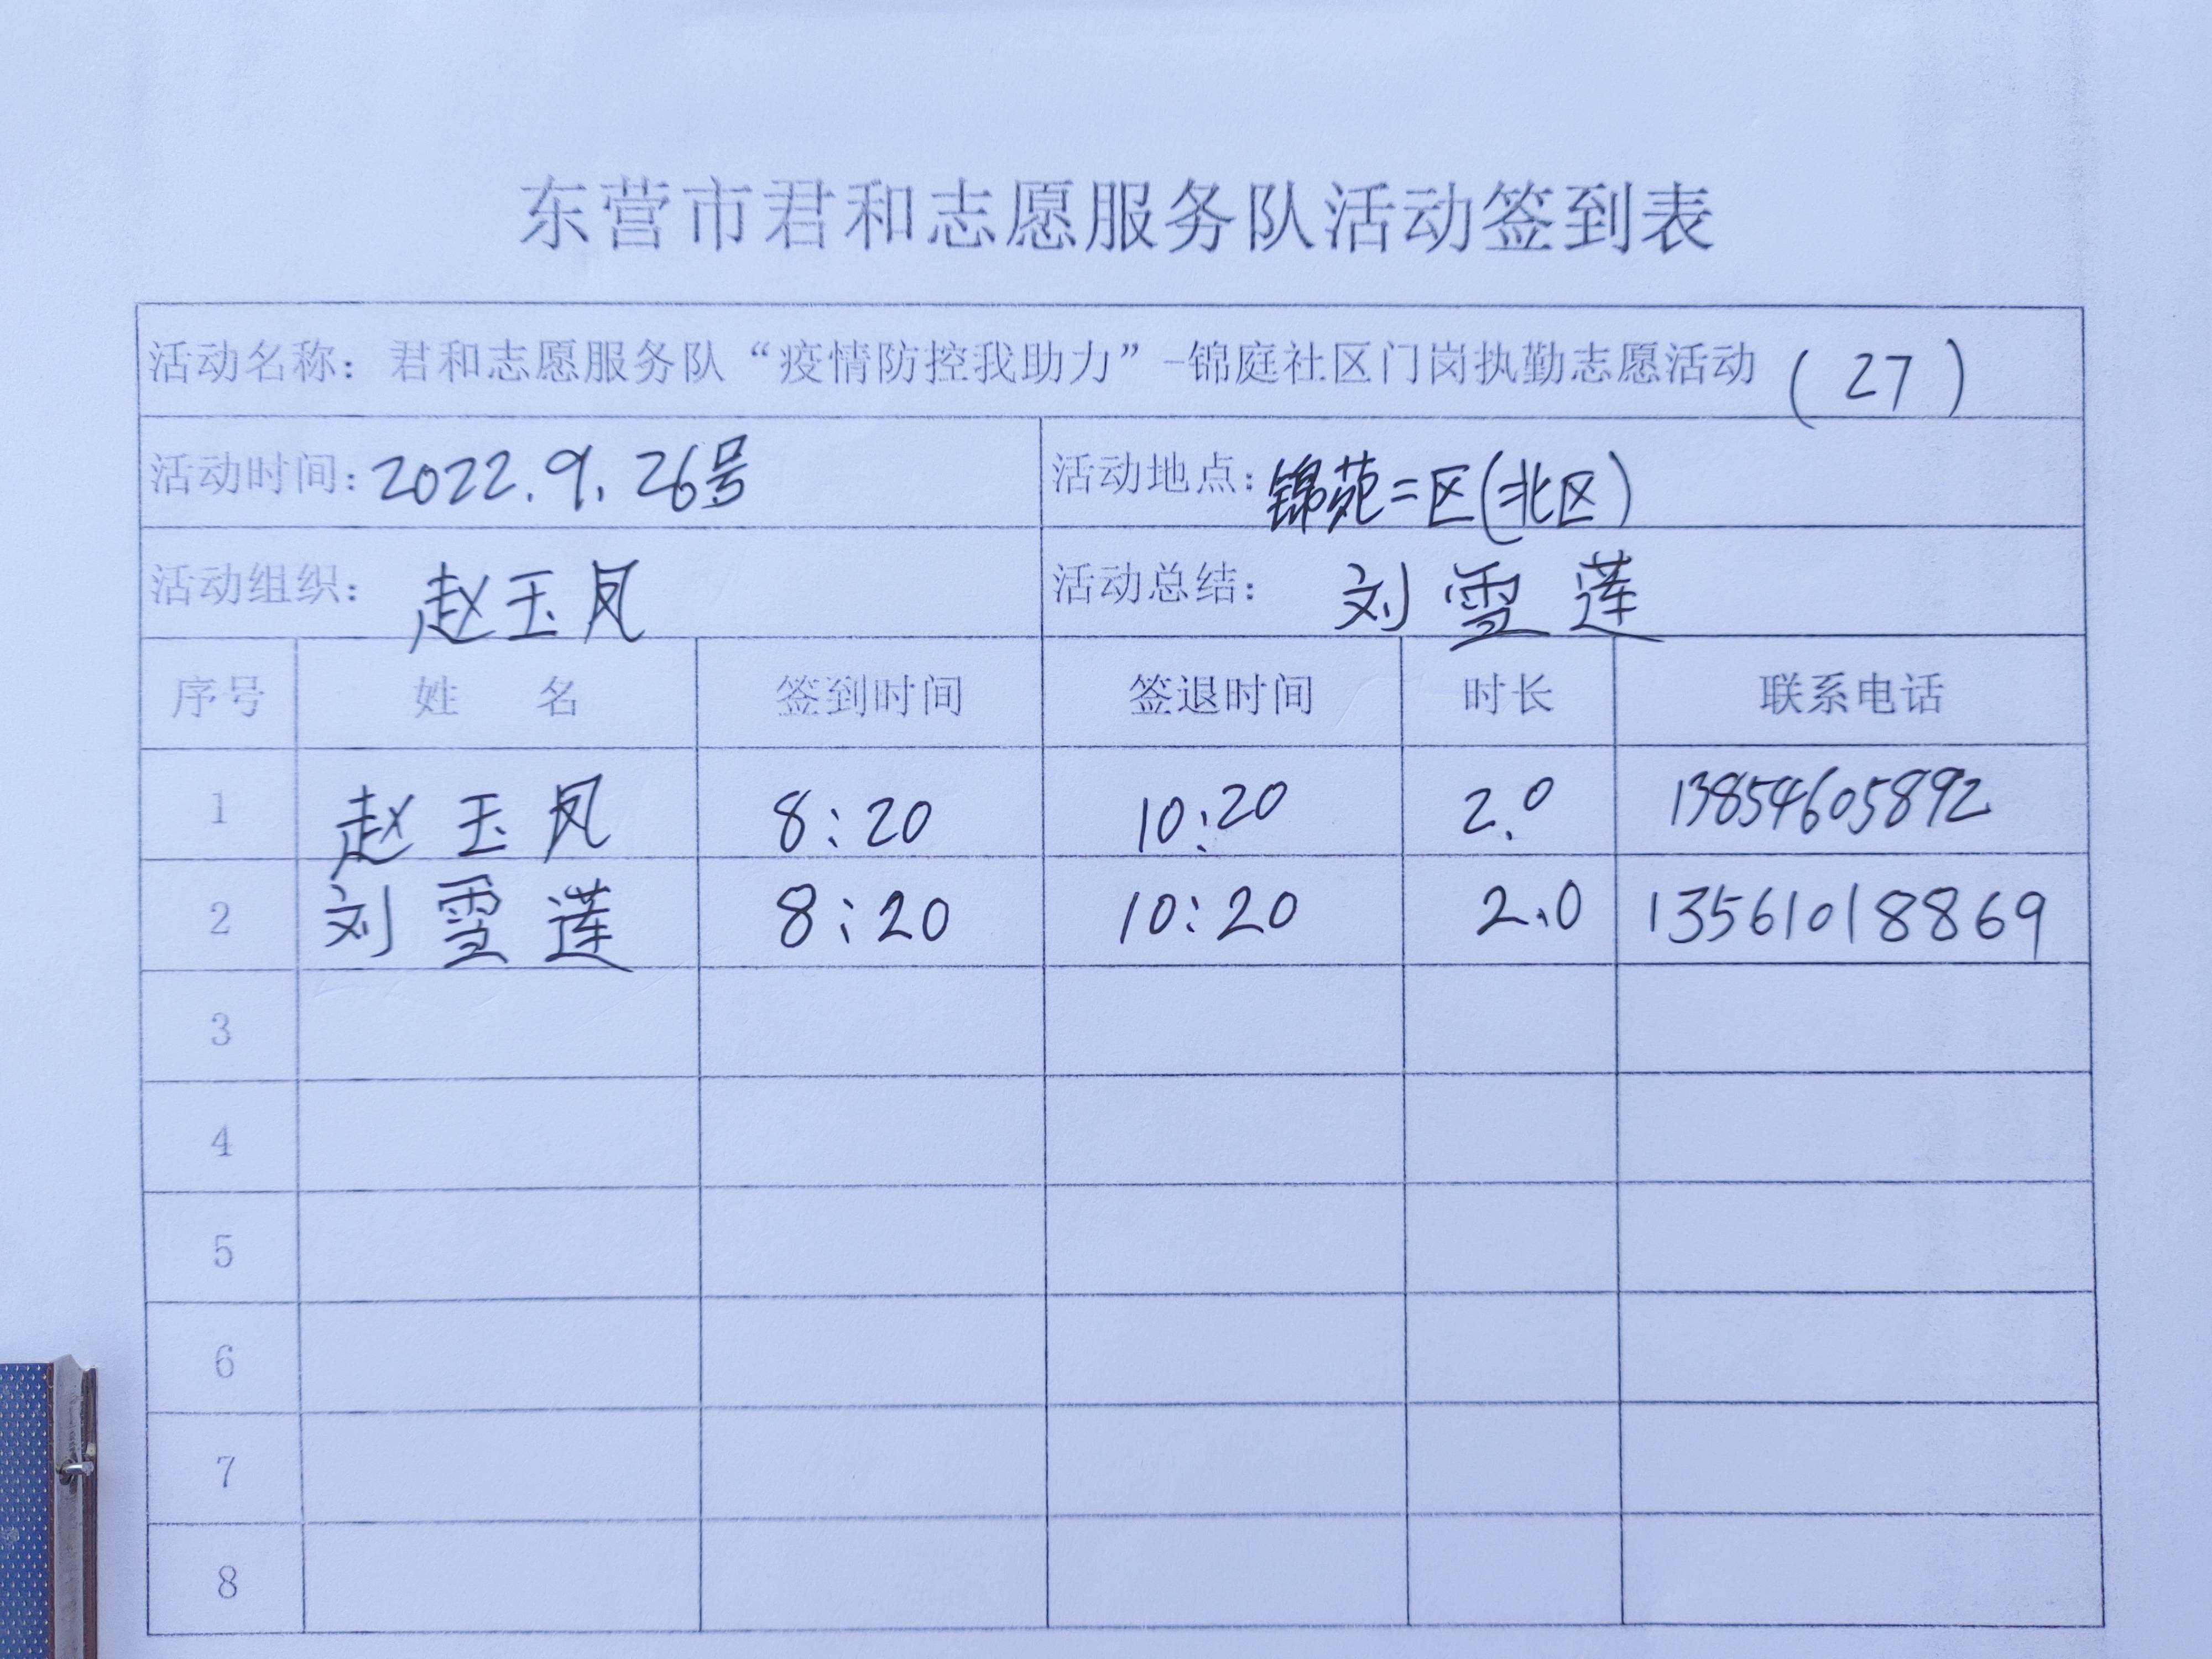 东营市君和志愿服务队活动签到表
活动名称：君和志愿服务队“疫情防控我助力”-锦庭社区门岗执勤志愿活动（27）
活动时间：2022.9.26号 活动地点：锦苑二区（北区）
活动组织：赵玉凤 活动总结：刘雪莲
序号 姓 名 签到时间 签退时间 时长 联系电话
1 赵玉凤 8:20 10:20 2.0 13854605892
2 刘雪莲 8:20 10:20 2.0 13561018869
3
4
5
6
7
8